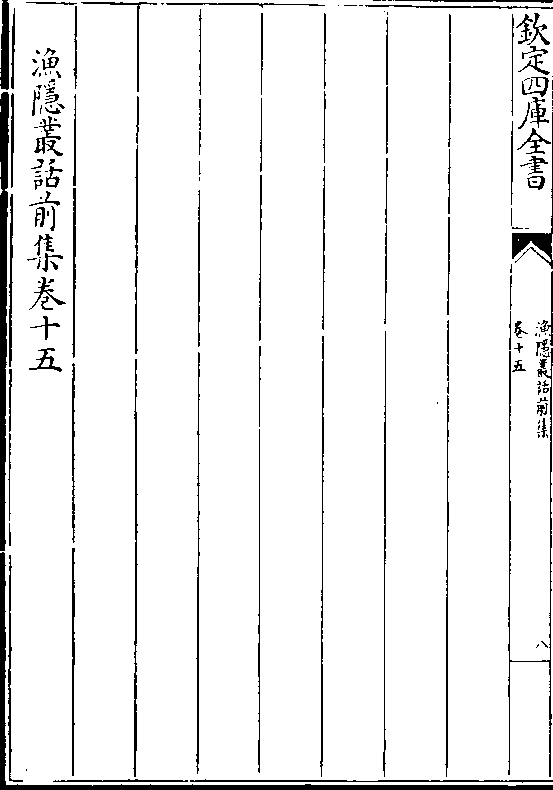 欽定四庫全書
漁隱叢話前集
卷十五
八
漁隱叢話前集卷十五